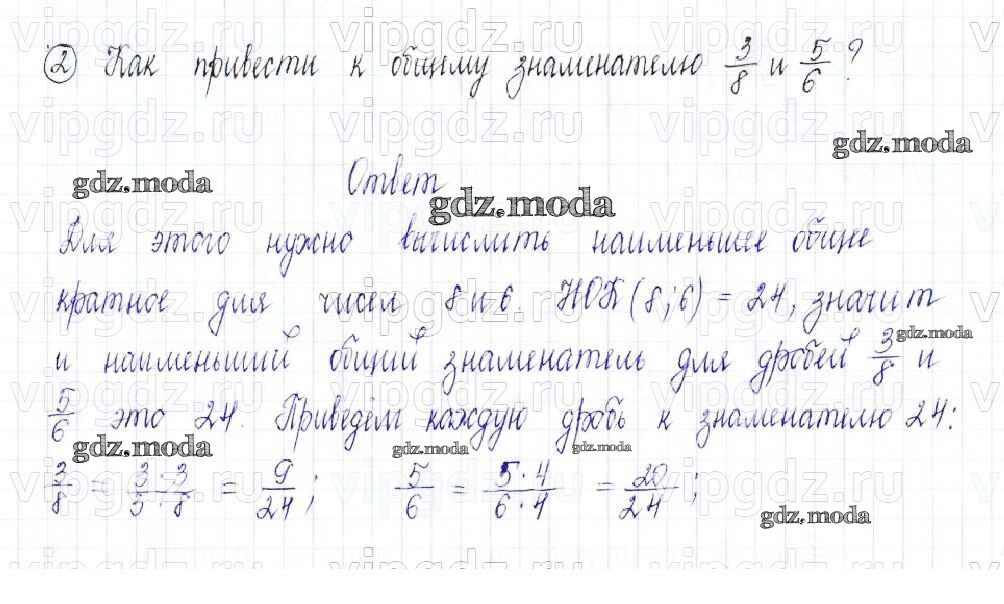 ② Как привести к общему знаменателю 3/8 и 5/6?
gdz.moda
gdz.moda
Ответ
gdz.moda
Для этого нужно вычислить наименьшее общее
кратное для чисел 8 и 6. НОК (8; 6) = 24, значит
gdz.moda
и наименьший общий знаменатель для дробей 3/8 и
5/6 это 24. Приведём каждую дробь к знаменателю 24:
gdz.moda
gdz.moda
gdz.moda
3/8 = 3 · 3/3 · 8 = 9/24; 5/6 = 5 · 4/6 · 4 = 20/24;
gdz.moda
vipgdz.ru